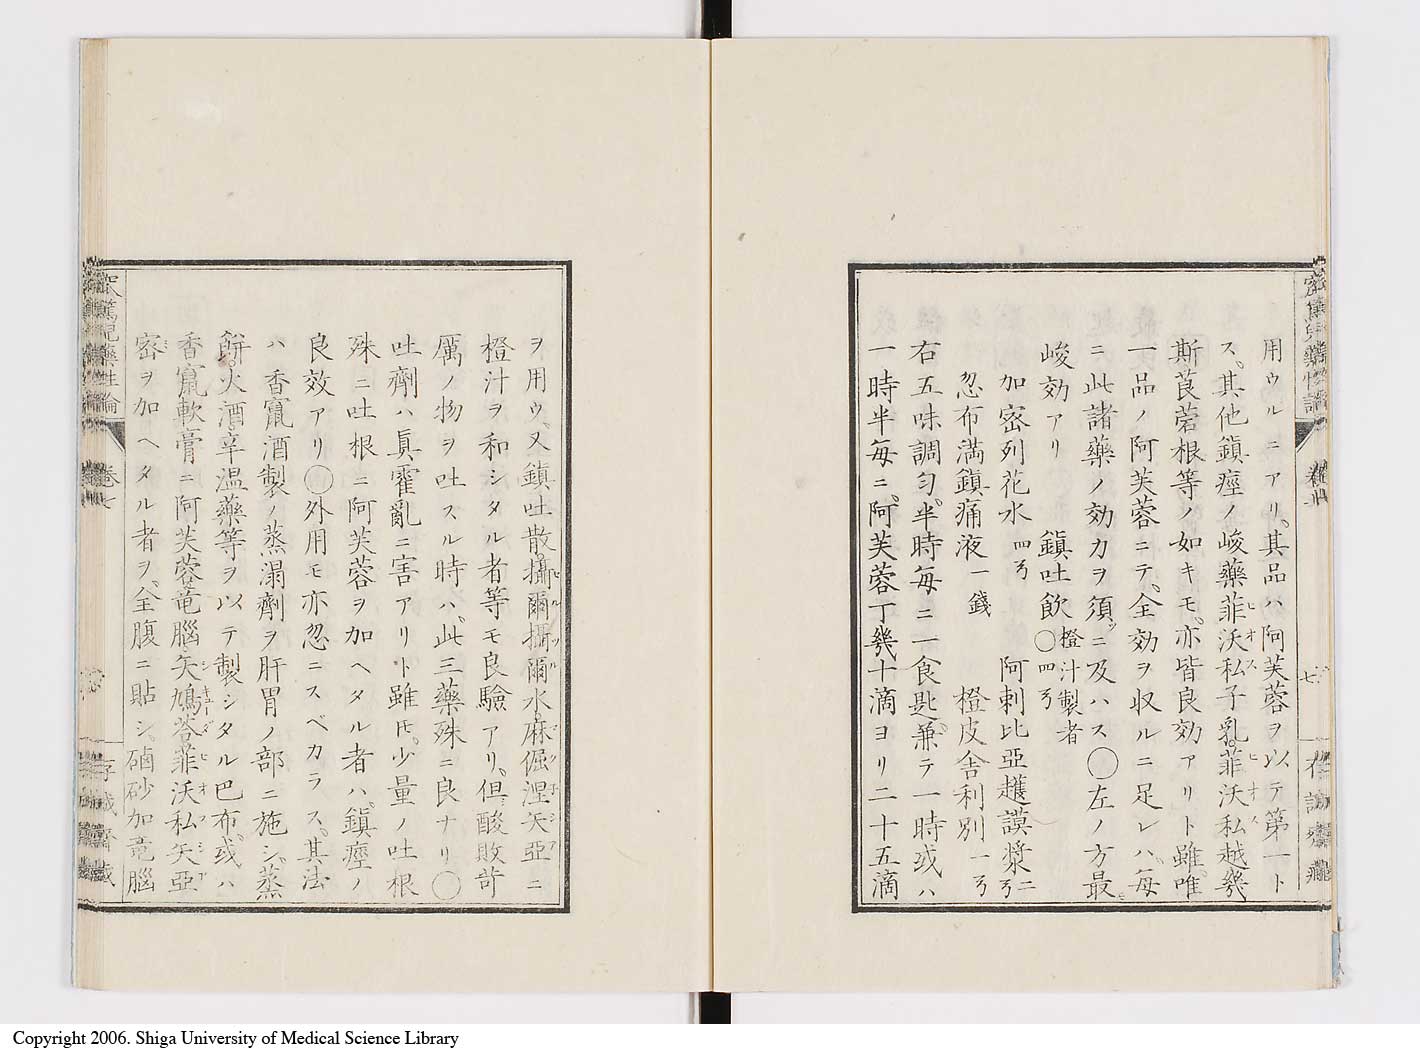 用ウルニアリ。其品ハ阿芙蓉ヲ以テ第一ト
ス。其他鎮痙ノ峻藥菲沃私子乳。菲沃私越幾
斯莨菪根等ノ如キモ。亦皆良効アリト雖。唯
一品ノ阿芙蓉ニテ。全効ヲ収ルニ足レハ。毎
ニ此諸藥ノ効力ヲ須ニ及ハス◯左ノ方最
峻効アリ　鎮吐飲◯橙汁製者四ろ
加密列花水四ろ　阿刺比亞護謨漿二ろ
忽布満鎮痛液一錢　橙皮舎利別一ろ
右五味調匀。半時毎ニ一食匙。兼テ一時或ハ
一時半毎ニ。阿芙蓉丁幾十滴ヨリ二十五滴
ヲ用ウ。又鎮吐散。攝爾攝爾水。麻倔涅矢亞ニ
橙汁ヲ和シタル者等モ良驗アリ。但酸敗苛
厲ノ物ヲ吐スル時ハ。此三藥殊ニ良ナリ◯
吐劑ハ眞霍亂ニ害アリト雖モ。少量ノ吐根
殊ニ吐根ニ阿芙蓉ヲ加ヘタル者ハ。鎮痙ノ
良效アリ◯外用モ亦忽ニスベカラス。其法
ハ香竄酒製ノ蒸溻劑ヲ肝胃ノ部ニ施シ。蒸
餅。火酒辛温藥等ヲ以テ製シタル巴布。或ハ
香竄軟膏ニ阿芙蓉竜腦。矢鳩荅菲沃私矢亞
密ヲ加ヘタル者ヲ。全腹ニ貼シ。硇砂加竜腦
窊篤兒藥性論
卷七
存誠齋藏
七